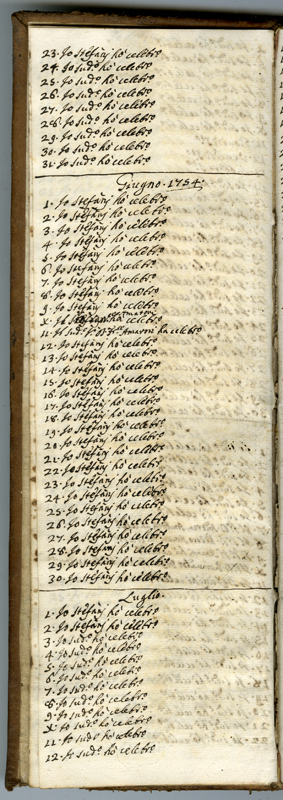 23. Io Stefanj hò celebro
24. Io sudo. hò celebro
25. Io sudo. hò celebro
26. Io sudo. hò celebro
27. Io sudo. hò celebro
28. Io sudo. hò celebro
29. Io sudo. hò celebro
30. Io sudo. hò celebro
31. Io sudo. hò celebro
Giugno. 1754.
1. Io Stefanj hò celebro
2. Io Stefanj hò celebro
3. Io Stefanj hò celebro
4. Io Stefanj hò celebro
5. Io Stefanj hò celebro
6. Io Stefanj hò celebro
7. Io Stefanj hò celebro
8. Io Stefanj hò celebro
9. Io Stefanj hò celebro
X. Io Amaroni hà celebro
11. Amaroni hà celebro
12. Io Stefanj hò celebro
13. Io Stefanj hò celebro
14. Io Stefanj hò celebro
15. Io Stefanj hò celebro
16. Io Stefanj hò celebro
17. Io Stefanj hò celebro
18. Io Stefanj hò celebro
19. Io Stefanj hò celebro
20. Io Stefanj hò celebro
21. Io Stefanj hò celebro
22. Io Stefanj hò celebro
23. Io Stefanj hò celebro
24. Io Stefanj hò celebro
25. Io Stefanj hò celebro
26. Io Stefanj hò celebro
27. Io Stefanj hò celebro
28. Io Stefanj hò celebro
29. Io Stefanj hò celebro
30. Io Stefanj hò celebro
Luglio.
1. Io Stefanj hò celebro
2. Io Stefanj hò celebro
3. Io sudo. hò celebro
4. Io sudo. hò celebro
5. Io sudo. hò celebro
6. Io sudo. hò celebro
7. Io sudo. hò celebro
8. Io sudo. hò celebro
9. Io sudo. hò celebro
X. Io sudo. hò celebro
11. Io sudo. hò celebro
12. Io sudo. hò celebro